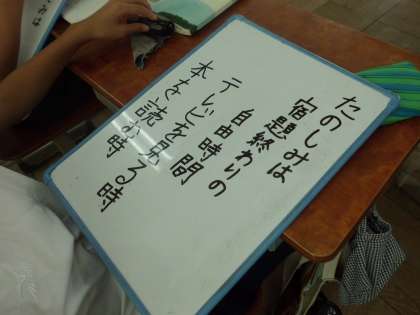 たのしみは
宿題終わりの
自由時間
テレビを見る時
本を読む時